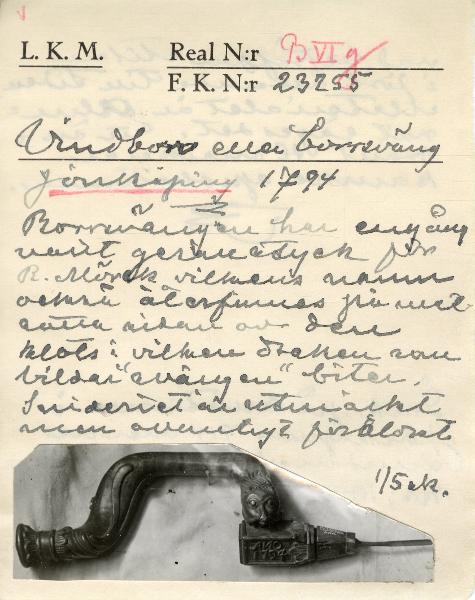 L. K. M. Real N:r B VI g
F. K. N:r 23255
Vindborr eller borrsväng
Jönköping 1794
Borrsvängen har engång
varit germästyck för
R. Mörck vilkens namn
också återfinnes på mot-
satta sidan av den
klots i vilken draken som
bildar "svängen" biter.
Snideriet är utmärkt
men ovanligt
1/5 sk.
ANO
1794